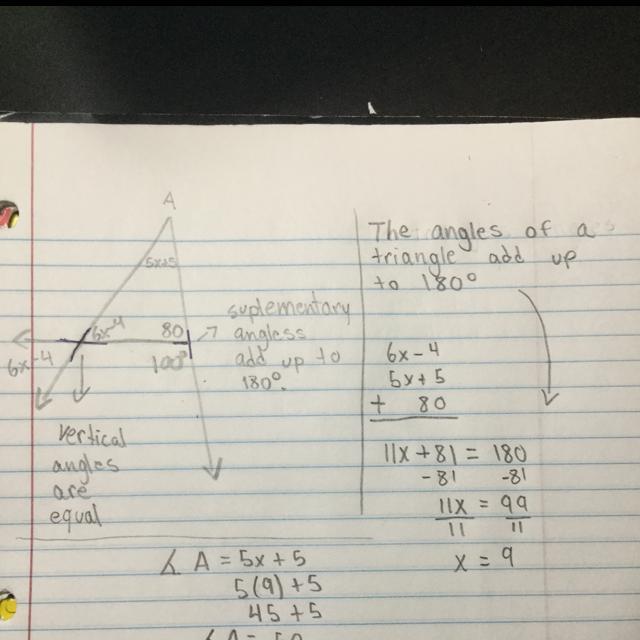 A
5x+5
6x-4
80
6x-4
100°
suplementary
angless
add up to
180°.
vertical
angles
are
equal
The angles of a
triangle add up
to 180°
6x-4
5x+5
+ 80
11x+81 = 180
-81 -81
11x = 99
11 11
x = 9
∡ A = 5x+5
5(9)+5
45+5
∡A = 50